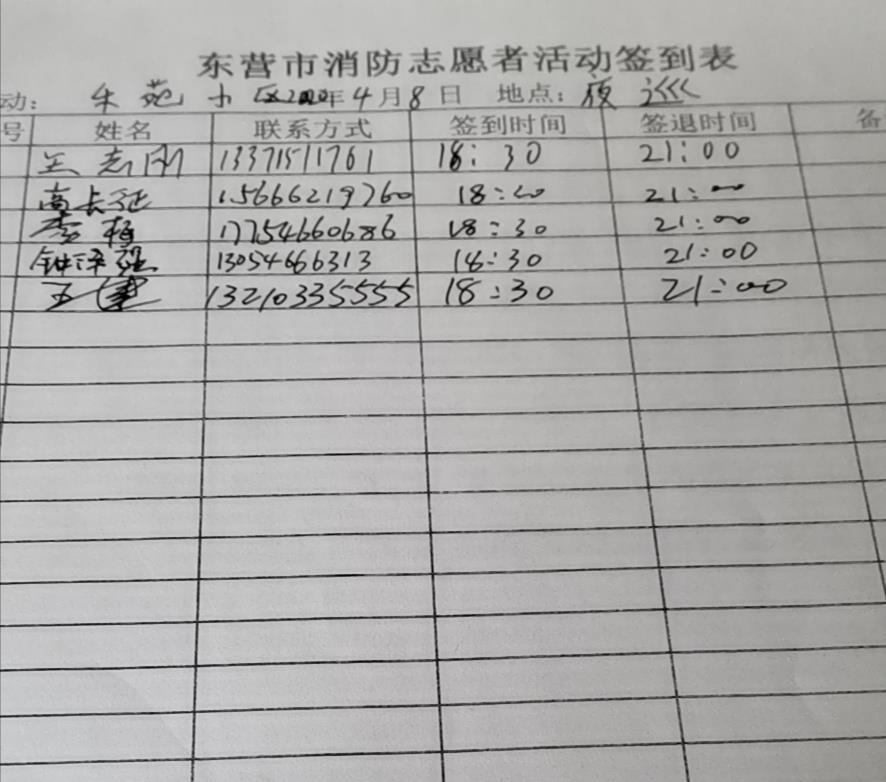 东营市消防志愿者活动签到表
动: 苑 小区2020年4月8日 地点: 夜巡
号 姓名 联系方式 签到时间 签退时间 备
王志刚 13371511761 18:30 21:00
高长征 15666219760 18:20 21:00
李 17754660686 18:30 21:00
钟泽强 13054666313 18:30 21:00
王建 13210335555 18:30 21:00